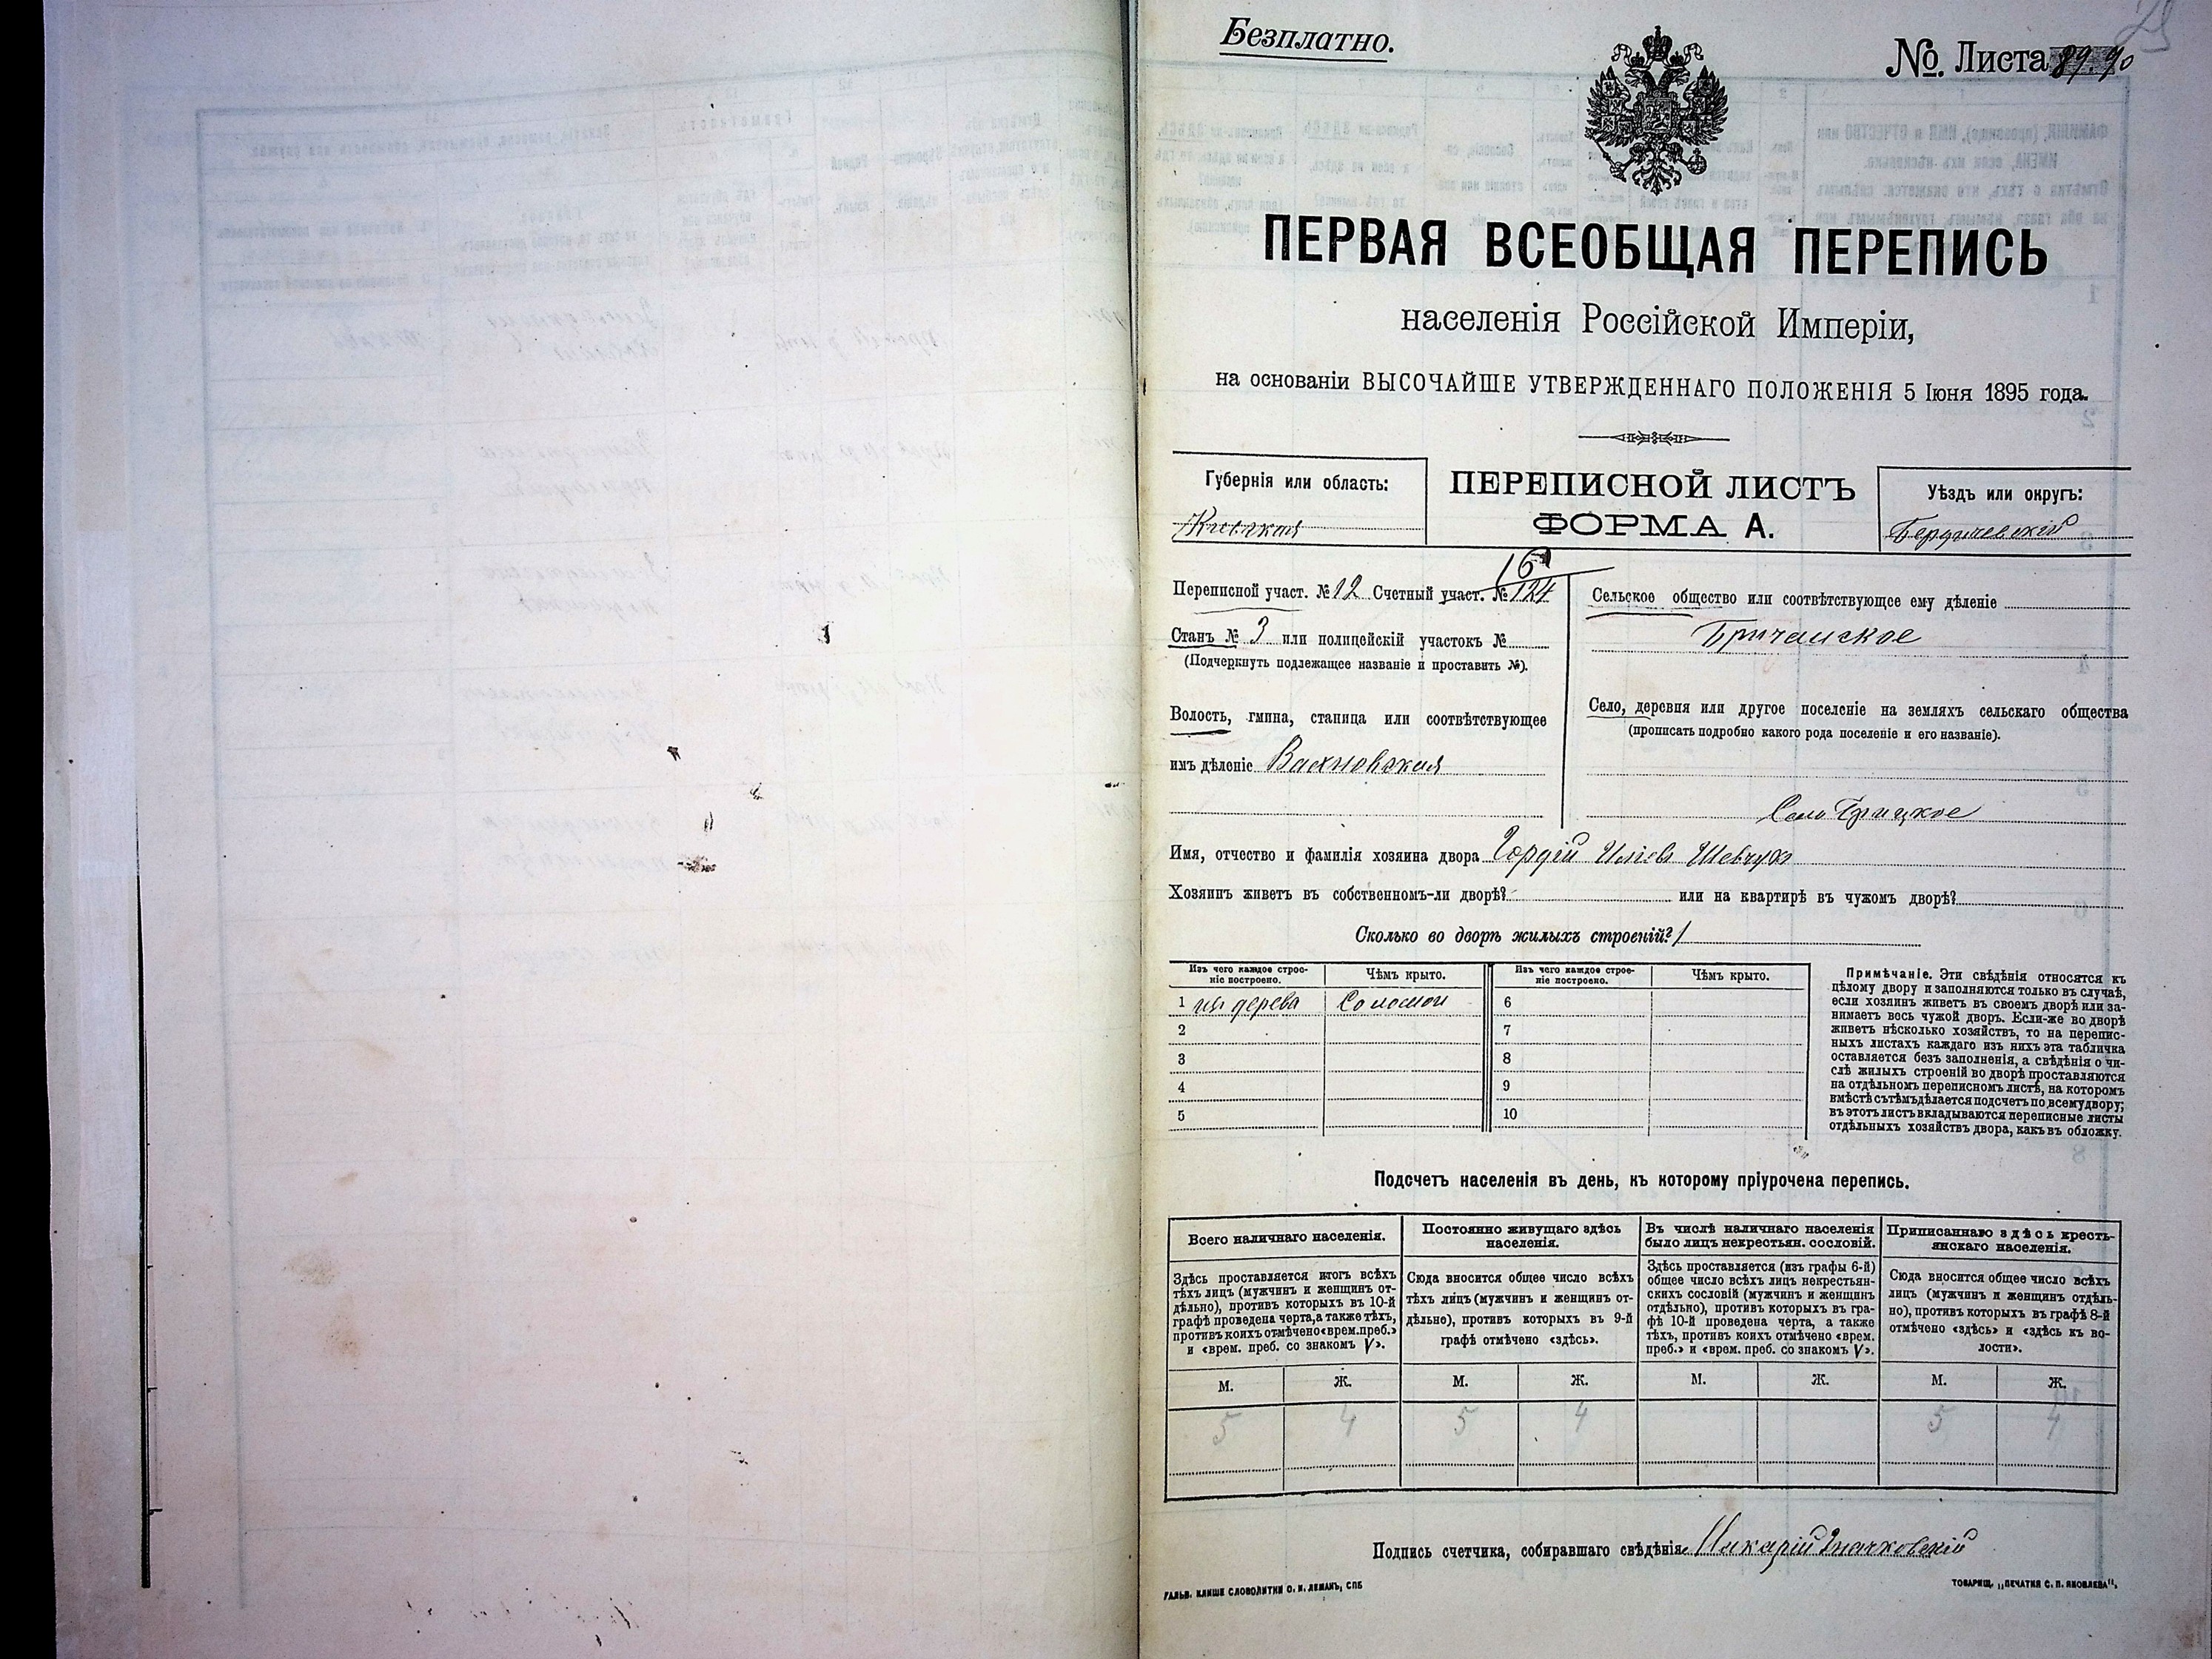 Безплатно.
№. Листа 89.90
ПЕРВАЯ ВСЕОБЩАЯ ПЕРЕПИСЬ
населенія Россійской Имперіи,
на основаніи ВЫСОЧАЙШЕ УТВЕРЖДЕННАГО ПОЛОЖЕНІЯ 5 Іюня 1895 года.
Губернія или область:
Кіевская
ПЕРЕПИСНОЙ ЛИСТЪ
ФОРМА А.
Уѣздъ или округъ:
Бердичевскій
Переписной участ. № 12 Счетный участ. № 124
16
Станъ № 3 или полицейскій участокъ №
(Подчеркнуть подлежащее названіе и проставить №).
Волость, гмина, станица или соотвѣтствующее
имъ дѣленіе Вахновская
Сельское общество или соотвѣтствующее ему дѣленіе
Село, деревня или другое поселеніе на земляхъ сельскаго общества
(прописать подробно какого рода поселеніе и его названіе).
Село
Имя, отчество и фамилія хозяина двора Гордій Иліевъ Шевчукъ
Хозяинъ живетъ въ собственномъ-ли дворѣ? или на квартирѣ въ чужомъ дворѣ?
Сколько во дворѣ жилыхъ строеній? 1
Изъ чего каждое строе-
ніе построено.
Чѣмъ крыто.
Изъ чего каждое строе-
ніе построено.
Чѣмъ крыто.
1 изъ дерева Соломой 6
2 7
3 8
4 9
5 10
Примѣчаніе. Эти свѣдѣнія относятся къ
цѣлому двору и заполняются только въ случаѣ,
если хозяинъ живетъ въ своемъ дворѣ или за-
нимаетъ весь чужой дворъ. Если-же во дворѣ
живетъ нѣсколько хозяйствъ, то на перепис-
ныхъ листахъ каждаго изъ нихъ эта табличка
оставляется безъ заполненія, а свѣдѣнія о чи-
слѣ жилыхъ строеній во дворѣ проставляются
на отдѣльномъ переписномъ листѣ, на которомъ
вмѣстѣ съ тѣмъ дѣлается подсчетъ по всему двору;
въ этотъ листъ вкладываются переписные листы
отдѣльныхъ хозяйствъ двора, какъ въ обложку.
Подсчетъ населенія въ день, къ которому пріурочена перепись.
Всего наличнаго населенія.
Здѣсь проставляется итогъ всѣхъ
тѣхъ лицъ (мужчинъ и женщинъ от-
дѣльно), противъ которыхъ въ 10-й
графѣ проведена черта, а также тѣхъ,
противъ коихъ отмѣчено «врем. преб.»
и «врем. преб. со знакомъ V».
Постоянно живущаго здѣсь
населенія.
Сюда вносится общее число всѣхъ
тѣхъ лицъ (мужчинъ и женщинъ от-
дѣльно), противъ которыхъ въ 9-й
графѣ отмѣчено «здѣсь».
Въ числѣ наличнаго населенія
было лицъ некрестьян. сословій.
Здѣсь проставляется (изъ графы 6-й)
общее число всѣхъ лицъ некрестьян-
скихъ сословій (мужчинъ и женщинъ
отдѣльно), противъ которыхъ въ гра-
фѣ 10-й проведена черта, а также
тѣхъ, противъ коихъ отмѣчено «врем.
преб.» и «врем. преб. со знакомъ V».
Приписаннаго здѣсь кресть-
янскаго населенія.
Сюда вносится общее число всѣхъ
лицъ (мужчинъ и женщинъ отдѣль-
но), противъ которыхъ въ графѣ 8-й
отмѣчено «здѣсь» и «здѣсь къ во-
лости».
М. Ж. М. Ж. М. Ж. М. Ж.
5 4 5 4 5 4
Подпись счетчика, собиравшаго свѣдѣнія
ГАЛЬВ. КЛИШЕ СЛОВОЛИТНИ О. И. ЛЕМАНЪ, СПБ
ТОВАРИЩ. „ПЕЧАТНЯ С. П. ЯКОВЛЕВА“,